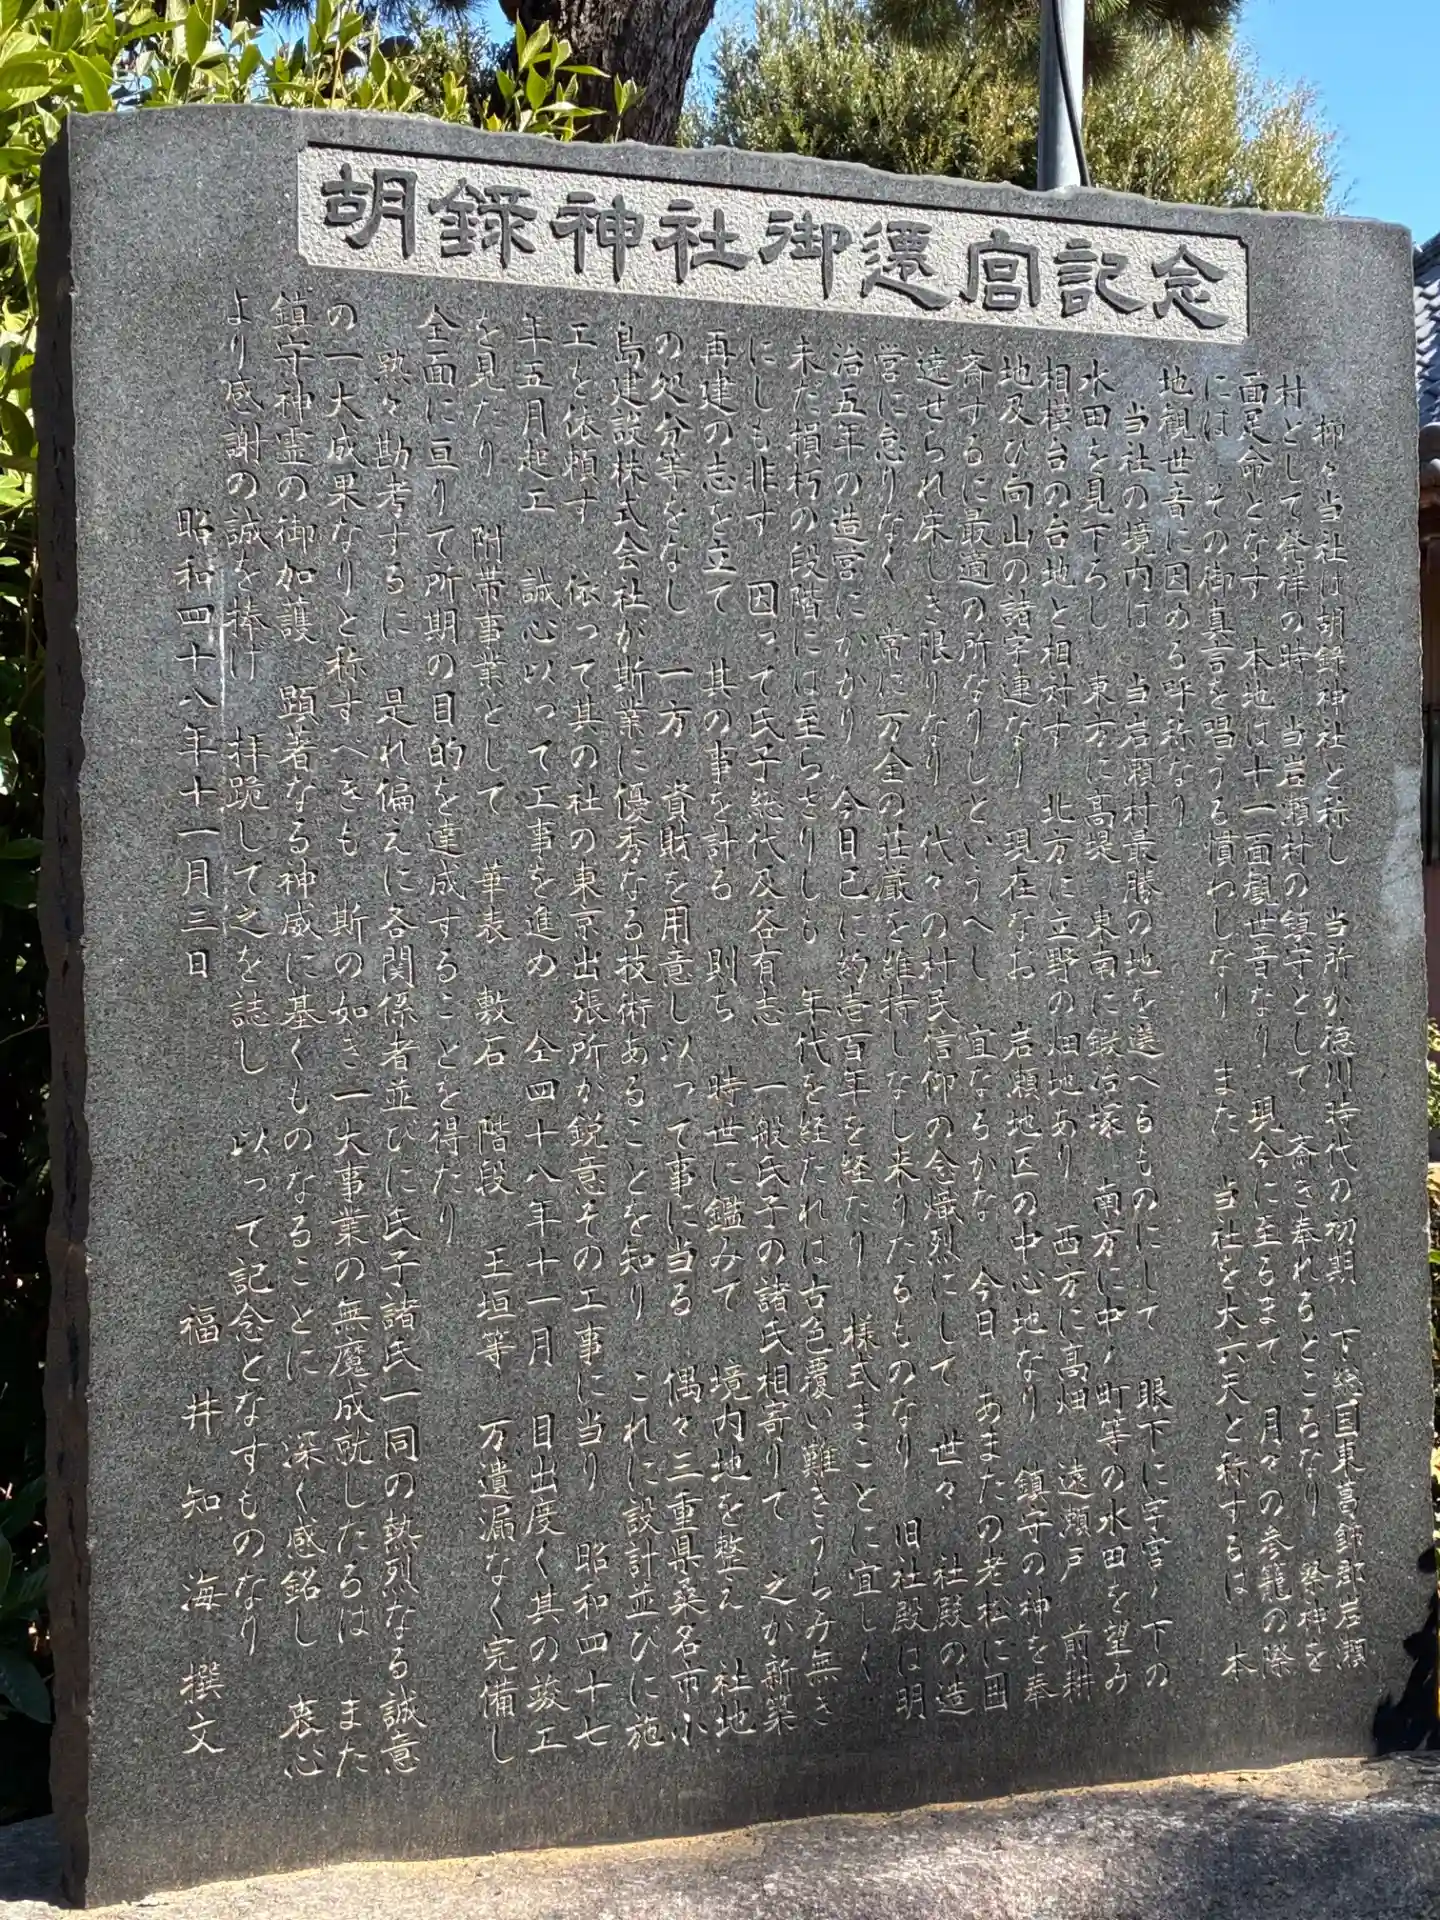 胡録神社御遷宮記念
抑々当社は胡録神社と称し　当所か徳川時代の初期　下総国東葛飾郡岩瀬
村として発祥の時　当岩瀬村の鎮守として　斎き奉れるところなり　祭神を
面足命となす　本地は十一面観世音なり　現今に至るまて　月々の参籠の際
には　その御真言を唱うる慣わしなり　また　当社を大六天と称するは　本
地観世音に因める呼称なり
当社の境内は　当岩瀬村最勝の地を選へるものにして　眼下に宇宮ノ下の
水田を見下ろし　東方に高堤　東南に鍛冶塚　南方に中ノ町等の水田を望み
相模台の台地と相対す　北方に立野の畑地あり　西方に高畑　遠瀬戸　前耕
地及ひ向山の諸字連なり　現在なお　岩瀬地区の中心地なり　鎮守の神を奉
斉するに最適の所なりしというへし　宜なるかな　今日　あまたの老松に囲
遶せられ床しき限りなり　代々の村民信仰の念熾烈にして　世々　社殿の造
営に怠りなく　常に万全の荘厳を維持しなし来りたるものなり　旧社殿は明
治五年の造営にかかり　今日已に約壱百年を経たり　様式まことに宜しく
未だ損朽の段階には至らさりしも　年代を経たれは古色覆い難きうらみ無き
にしも非す　因って氏子総代及各有志　一般氏子の諸氏相寄りて　之か新築
再建の志を立て　其の事を計る　則ち　時世に鑑みて　境内地を整え　社地
の処分等をなし　一方　資財を用意し以って事に当る　偶々三重県桑名市小
島建設株式会社か斯業に優秀なる技術あることを知り　これに設計並びに施
工を依頼す　依って其の社の東京出張所が鋭意その工事に当り　昭和四十七
年五月起工　誠心以って工事を進め　仝四十八年十一月　目出度く其の竣工
を見たり　附帯事業として　華表　敷石　階段　玉垣等　万遺漏なく完備し
全面に亘りて所期の目的を達成することを得たり
熟々勘考するに　是れ偏えに各関係者並びに氏子諸氏一同の熱烈なる誠意
の一大成果なりと称すべきも　斯の如き一大事業の無魔成就したるは　また
鎮守神霊の御加護　顕著なる神威に基くものなることに　深く感銘し　衷心
より感謝の誠を捧け　拝跪して之を誌し　以って記念となすものなり
昭和四十八年十一月三日　福井知海　撰文